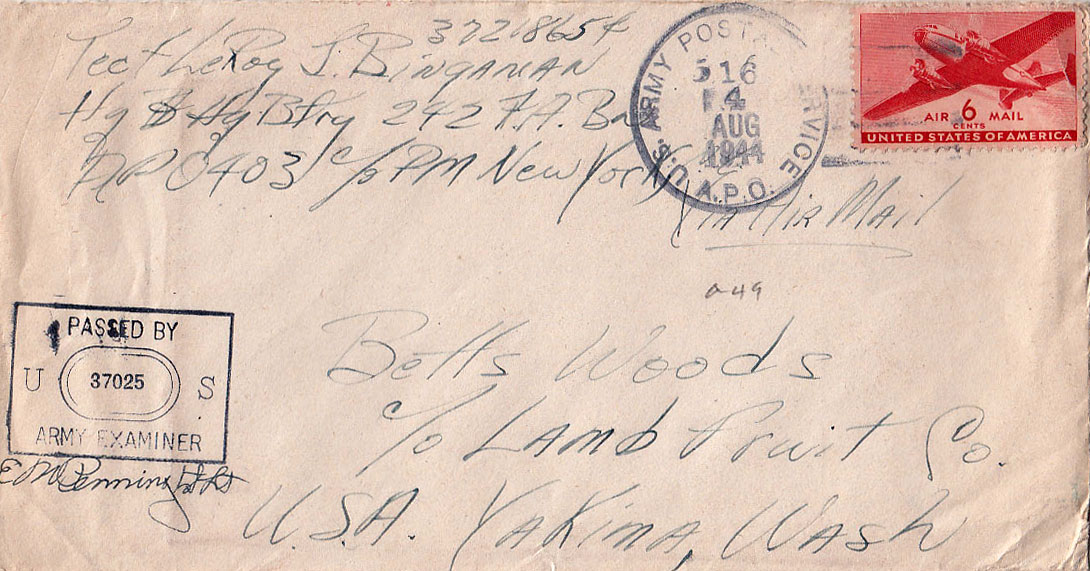 37218654
Tec 4 LeRoy J. Bingaman
Hq & Hq Btry 242 F.A. Bn
APO 403 c/o PM New York
U.S. ARMY POSTAL SERVICE
516
4
AUG
1944
A.P.O.
AIR 6 MAIL
CENTS
UNITED STATES OF AMERICA
Via Air Mail
a49
PASSED BY
U 37025 S
ARMY EXAMINER
Betts Woods
c/o Lamb Fruit Co.
U.S.A. Yakima, Wash